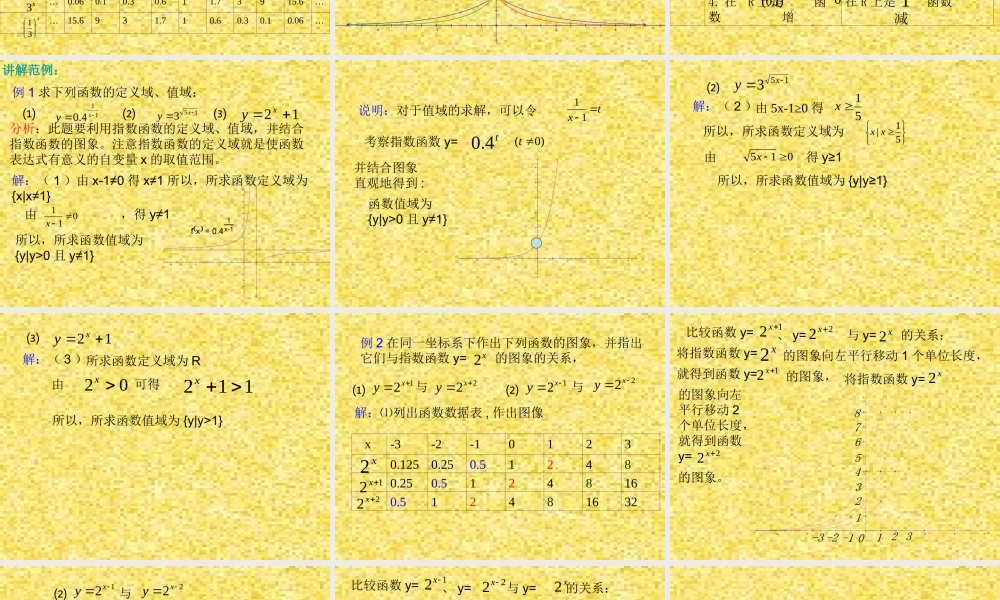 3ˣ … 0.06 0.1 0.3 0.6 1 1.7 3 9 15.6 …
(1/3)ˣ … 15.6 9 3 1.7 1 0.6 0.3 0.1 0.06 …
4. 在 R 上是增函数
在 R 上是减函数
讲解范例:
例 1 求下列函数的定义域、值域:
⑴ y=0.4^(1/(x-1)) ⑵ y=3^(√(5x-1)) ⑶ y=2^x+1
分析: 此题要利用指数函数的定义域、值域，并结合
指数函数的图象。注意指数函数的定义域就是使函数
表达式有意义的自变量 x 的取值范围。
解:（ 1 ）由 x-1≠0 得 x≠1 所以，所求函数定义域为
{x|x≠1}
由 1/(x-1)≠0 ，得 y≠1
f(x) = 0.4^(1/(x-1))
所以，所求函数值域为
{y|y>0 且 y≠1}
说明: 对于值域的求解，可以令 1/(x-1)=t
考察指数函数 y= 0.4^t (t≠0)
并结合图象
直观地得到 :
函数值域为
{y|y>0 且 y≠1}
⑵ y=3^(√(5x-1))
解:（ 2 ）由 5x-1≥0 得 x≥1/5
所以，所求函数定义域为 {x|x≥1/5}
由 √(5x-1)≥0 得 y≥1
所以，所求函数值域为 {y|y≥1}
⑶ y=2^x+1
解:（ 3 ）所求函数定义域为 R
由 2^x>0 可得 2^x+1>1
所以，所求函数值域为 {y|y>1}
例 2 在同一坐标系下作出下列函数的图象，并指出
它们与指数函数 y= 2^x 的图象的关系，
⑴ y=2^(x+1) 与 y=2^(x+2) ⑵ y=2^(x-1) 与 y=2^(x-2)
解: ⑴列出函数数据表 , 作出图像
x -3 -2 -1 0 1 2 3
2^x 0.125 0.25 0.5 1 2 4 8
2^(x+1) 0.25 0.5 1 2 4 8 16
2^(x+2) 0.5 1 2 4 8 16 32
比较函数 y= 2^(x+1) 、y= 2^(x+2) 与 y= 2^x 的关系:
将指数函数 y= 2^x 的图象向左平行移动 1 个单位长度，
就得到函数 y= 2^(x+1) 的图象， 将指数函数 y= 2^x
的图象向左
平行移动 2
个单位长度，
就得到函数
y= 2^(x+2)
的图象。
8
7
6
5
4
3
2
1
-3 -2 -1 0 1 2 3
⑵ y=2^(x-1) 与 y=2^(x-2)
比较函数 y= 2^(x-1) 、y= 2^(x-2) 与 y= 2^x 的关系: